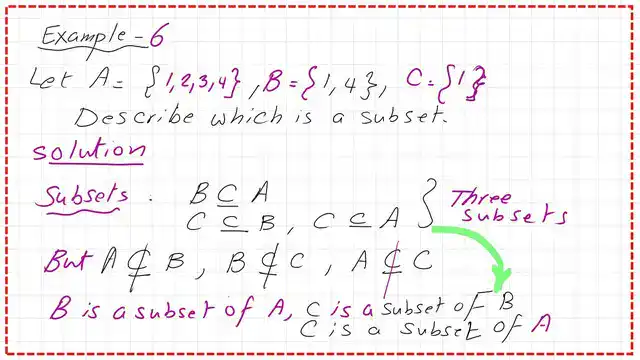 Example-6
Let A = {1,2,3,4}, B={1,4}, C={1}
Describe which is a subset.
solution
Subsets : B ⊆ A
C ⊆ B, C ⊆ A } Three subsets
But A ⊄ B, B ⊄ C, A ⊄ C
B is a subset of A, C is a subset of B
C is a subset of A